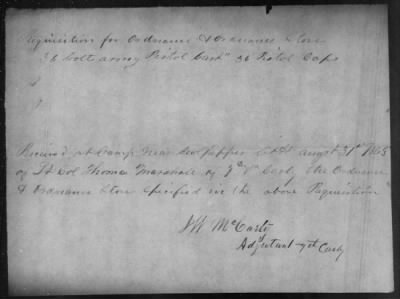 Requisition for Ordnance & Ordnance Stores
36 Colt army Pistol Cart" 36 Pistol Caps
Received at Camp near Culpepper CtH August 31st 1863
of Lt Col Thomas Marshall of 7th Va Cavly the Ordnance
& Ordnance Stores specified in the above Requisition
JW McCarty
Adjutant 7th Cavly